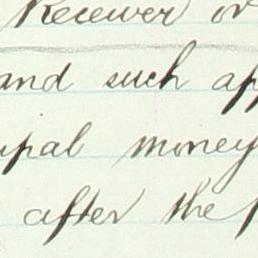 Receiver or
and such ap
upal money
after the p